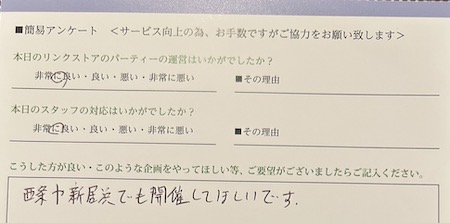 ■簡易アンケート <サービス向上の為、お手数ですがご協力をお願い致します>
本日のリンクストアのパーティーの運営はいかがでしたか?
非常に良い・良い・悪い・非常に悪い ■その理由
本日のスタッフの対応はいかがでしたか?
非常に良い・良い・悪い・非常に悪い ■その理由
こうした方が良い・このような企画をやってほしい等、ご要望がございましたらご記入ください。
西条や新居浜でも開催してほしいです.